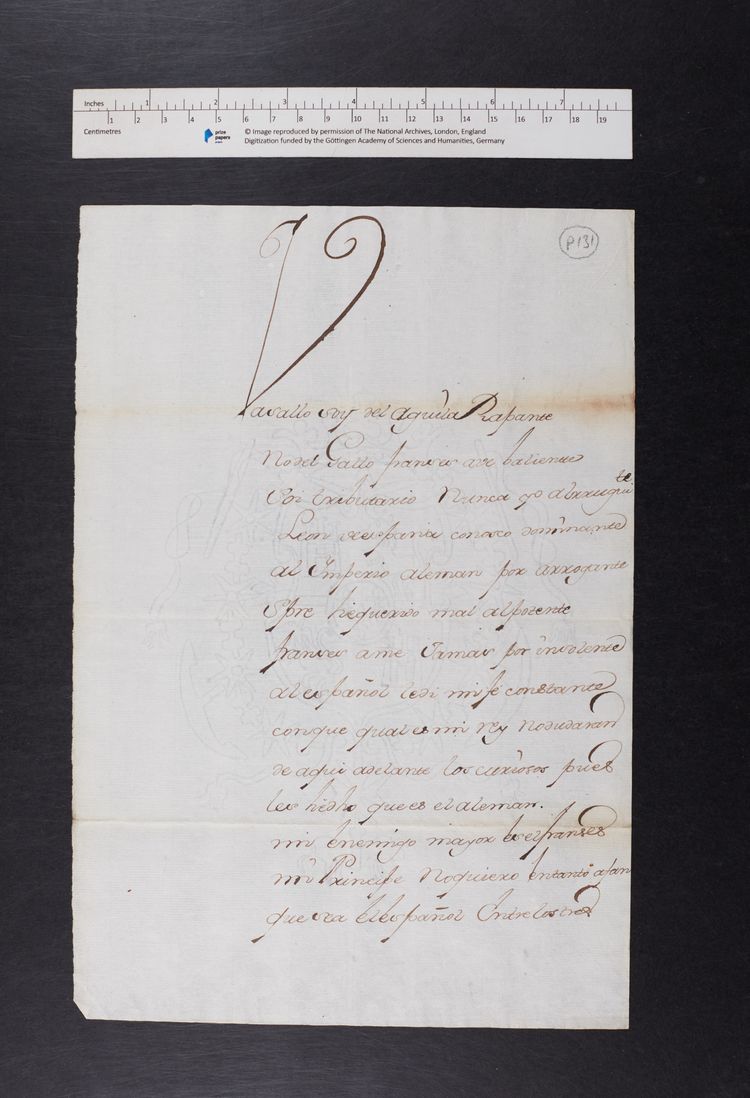 Inches 1 2 3 4 5 6 7
1 2 3 4 5 6 7 8 9 10 11 12 13 14 15 16 17 18 19
Centimetres
prize papers
© Image reproduced by permission of The National Archives, London, England
Digitization funded by the Göttingen Academy of Sciences and Humanities, Germany
P 131
Vasallo soy del aguila Rapante
No del Gallo franses ave baliente
Soi tributario Nunca yo al
Leon de españa conosco dominante
al Imperio aleman por arrogante
Spre he querido mal al potente
franses ame Jamas por insolente
al español le di mi fe constante
con que qual es mi rey No dudaran
de aqui adelante los curiosos pues
les hedho que es el aleman.
mi enemigo mayor es el franses
mi Principe No quiero en tanto afan
que sea el español Entre los tres